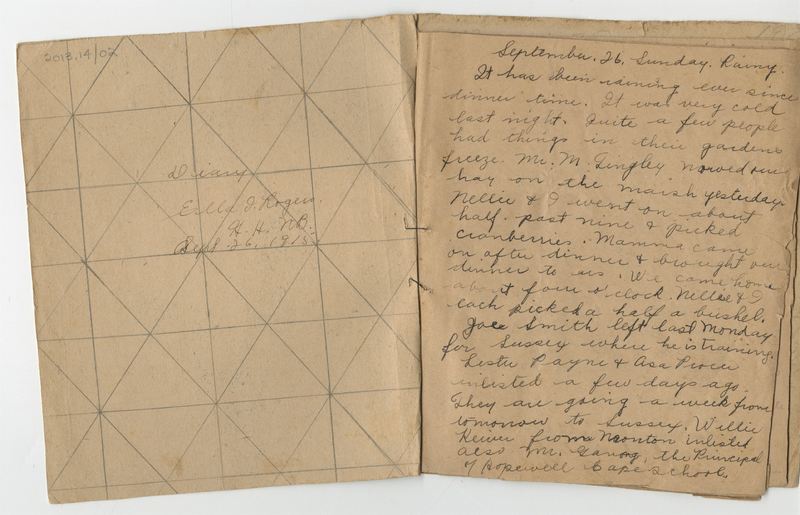 2013.14/02
Diary
Ella I. Rogers.
H. H. N.B.
Sept. 26, 1915
September. 26, Sunday. Rainy.
It has been raining ever since
dinner time. It was very cold
last night. Quite a few people
had things in their gardens
freeze. Mr. M. Tingley mowed our
hay on the marsh yesterday.
Nellie & I went on about
half past nine & picked
cranberries. Mamma came
on after dinner & brought our
dinner to us. We came home
about four o'clock. Nellie & I
each picked a half a bushel.
Joe Smith left last Monday
for Sussex where he is training.
Lester Payne & Asa
inlisted a few days ago.
They are going a week from
tomorrow to Sussex. Willie
Keiver from Moncton inlisted
also Mr. Ganong, the Principal
of Hopewell Cape School.